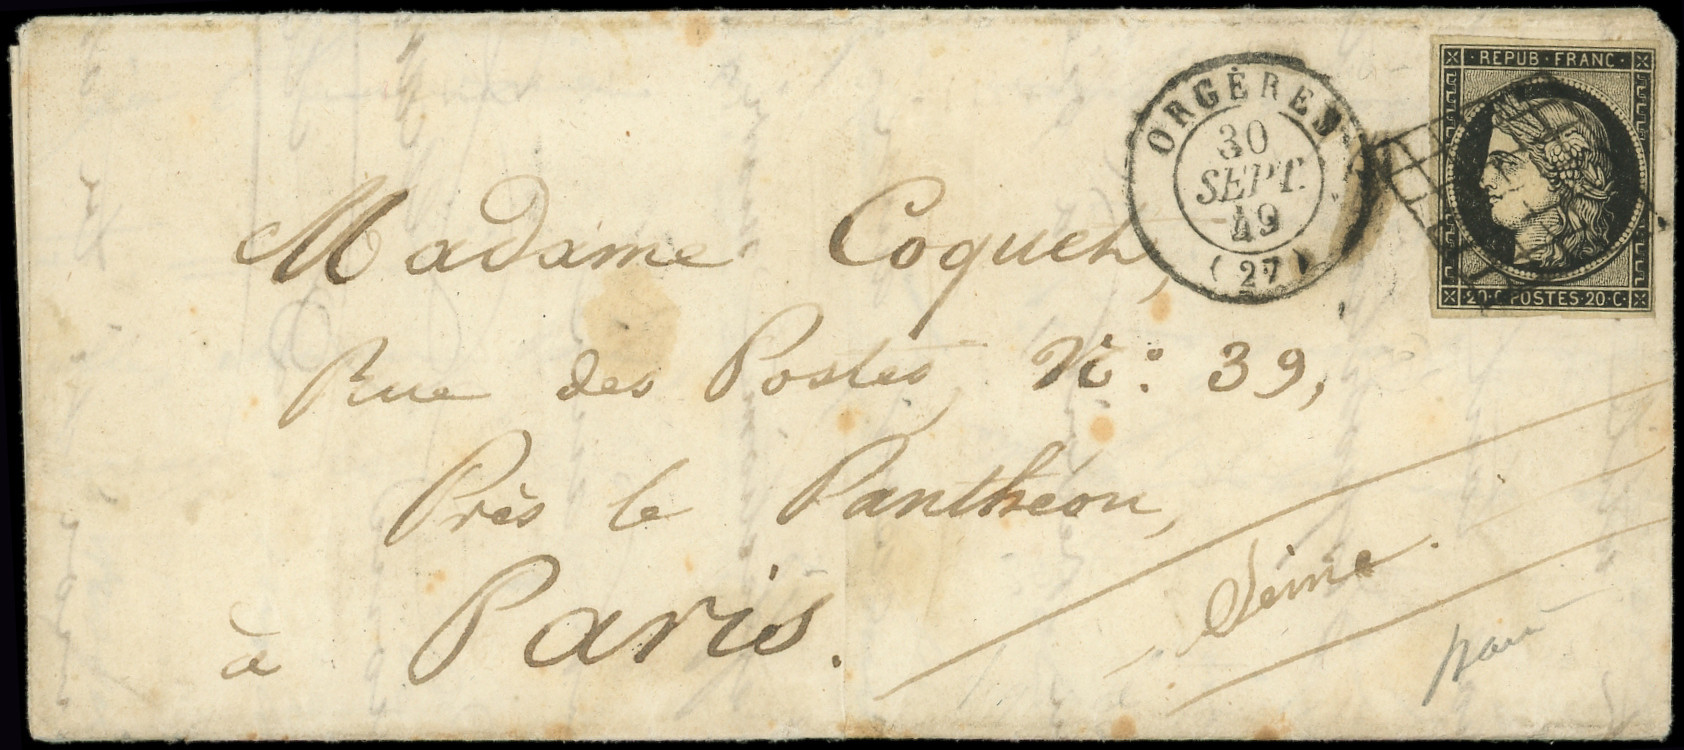 REPUB · FRANC ·
20 · C · POSTES · 20 · C ·
ORGÈRES
30
SEPT.
49
(27)
Madame
Rue des Postes, N.º 39,
Près le Panthéon,
à Paris.
Seine.